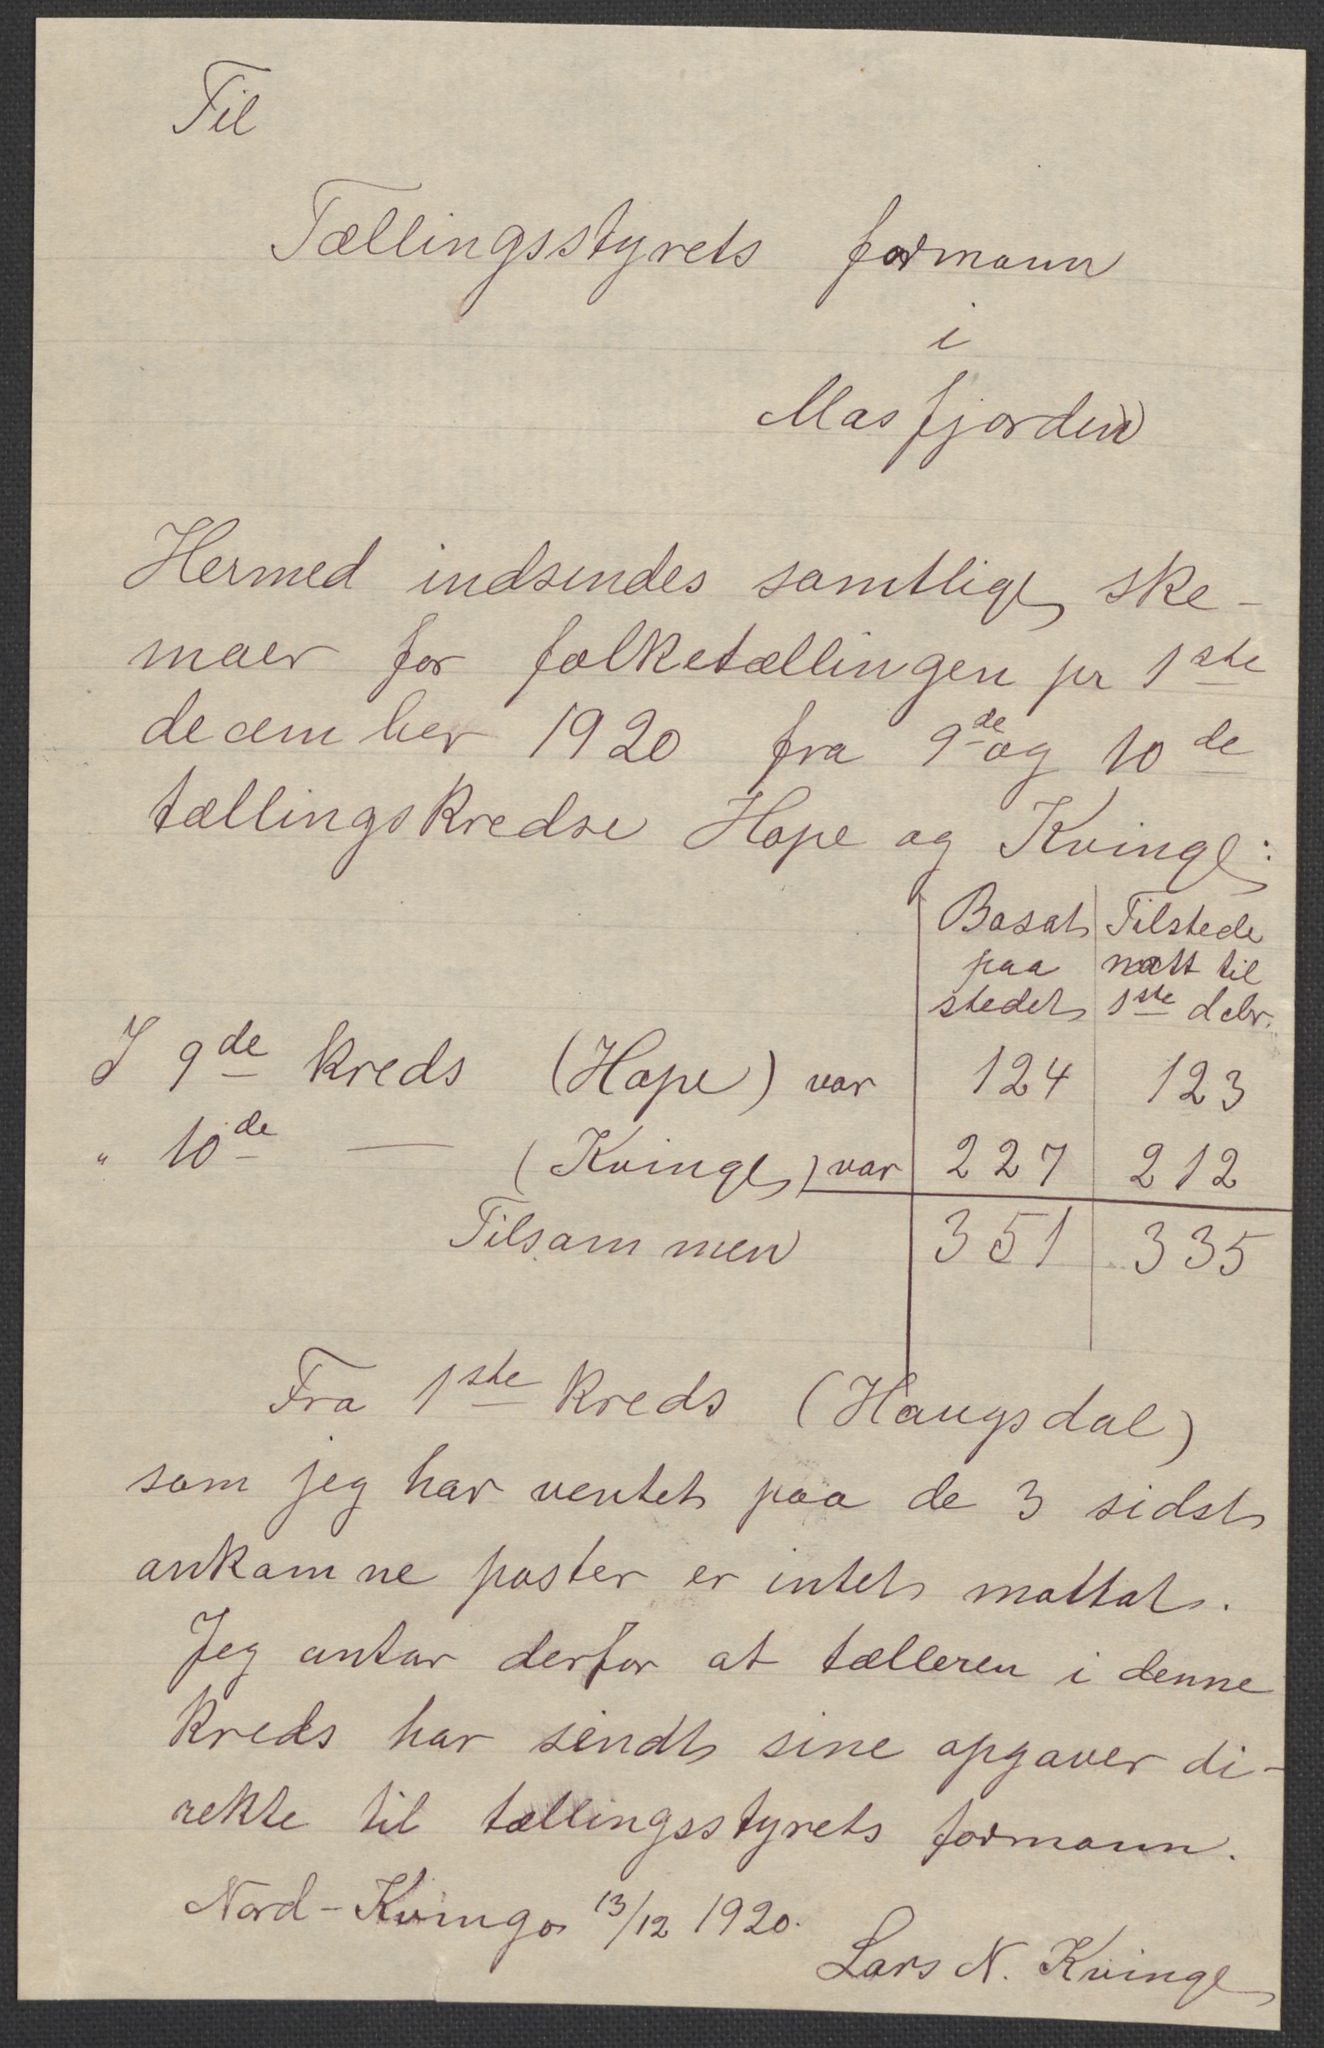 Til
Tællingsstyrets formann
i
Masfjorden
Hermed indsendes samtlige ske-
maer for folketællingen pr 1ste
december 1920 fra 9de og 10de
tællingskredse Hope og Kvinge:
Bosat Tilstede
paa natt til
stedet 1ste debr.
I 9de kreds (Hope) var 124 123
" 10de — (Kvinge) var 227 212
Tilsammen 351 335
Fra 1ste kreds (Haugsdal)
som jeg har ventet paa de 3 sidst
ankomne poster er intet mottat.
Jeg antar derfor at tælleren i denne
kreds har sendt sine opgaver di-
rekte til tællingsstyrets formann.
Nord-Kvingo 13/12 1920.
Lars N. Kvinge